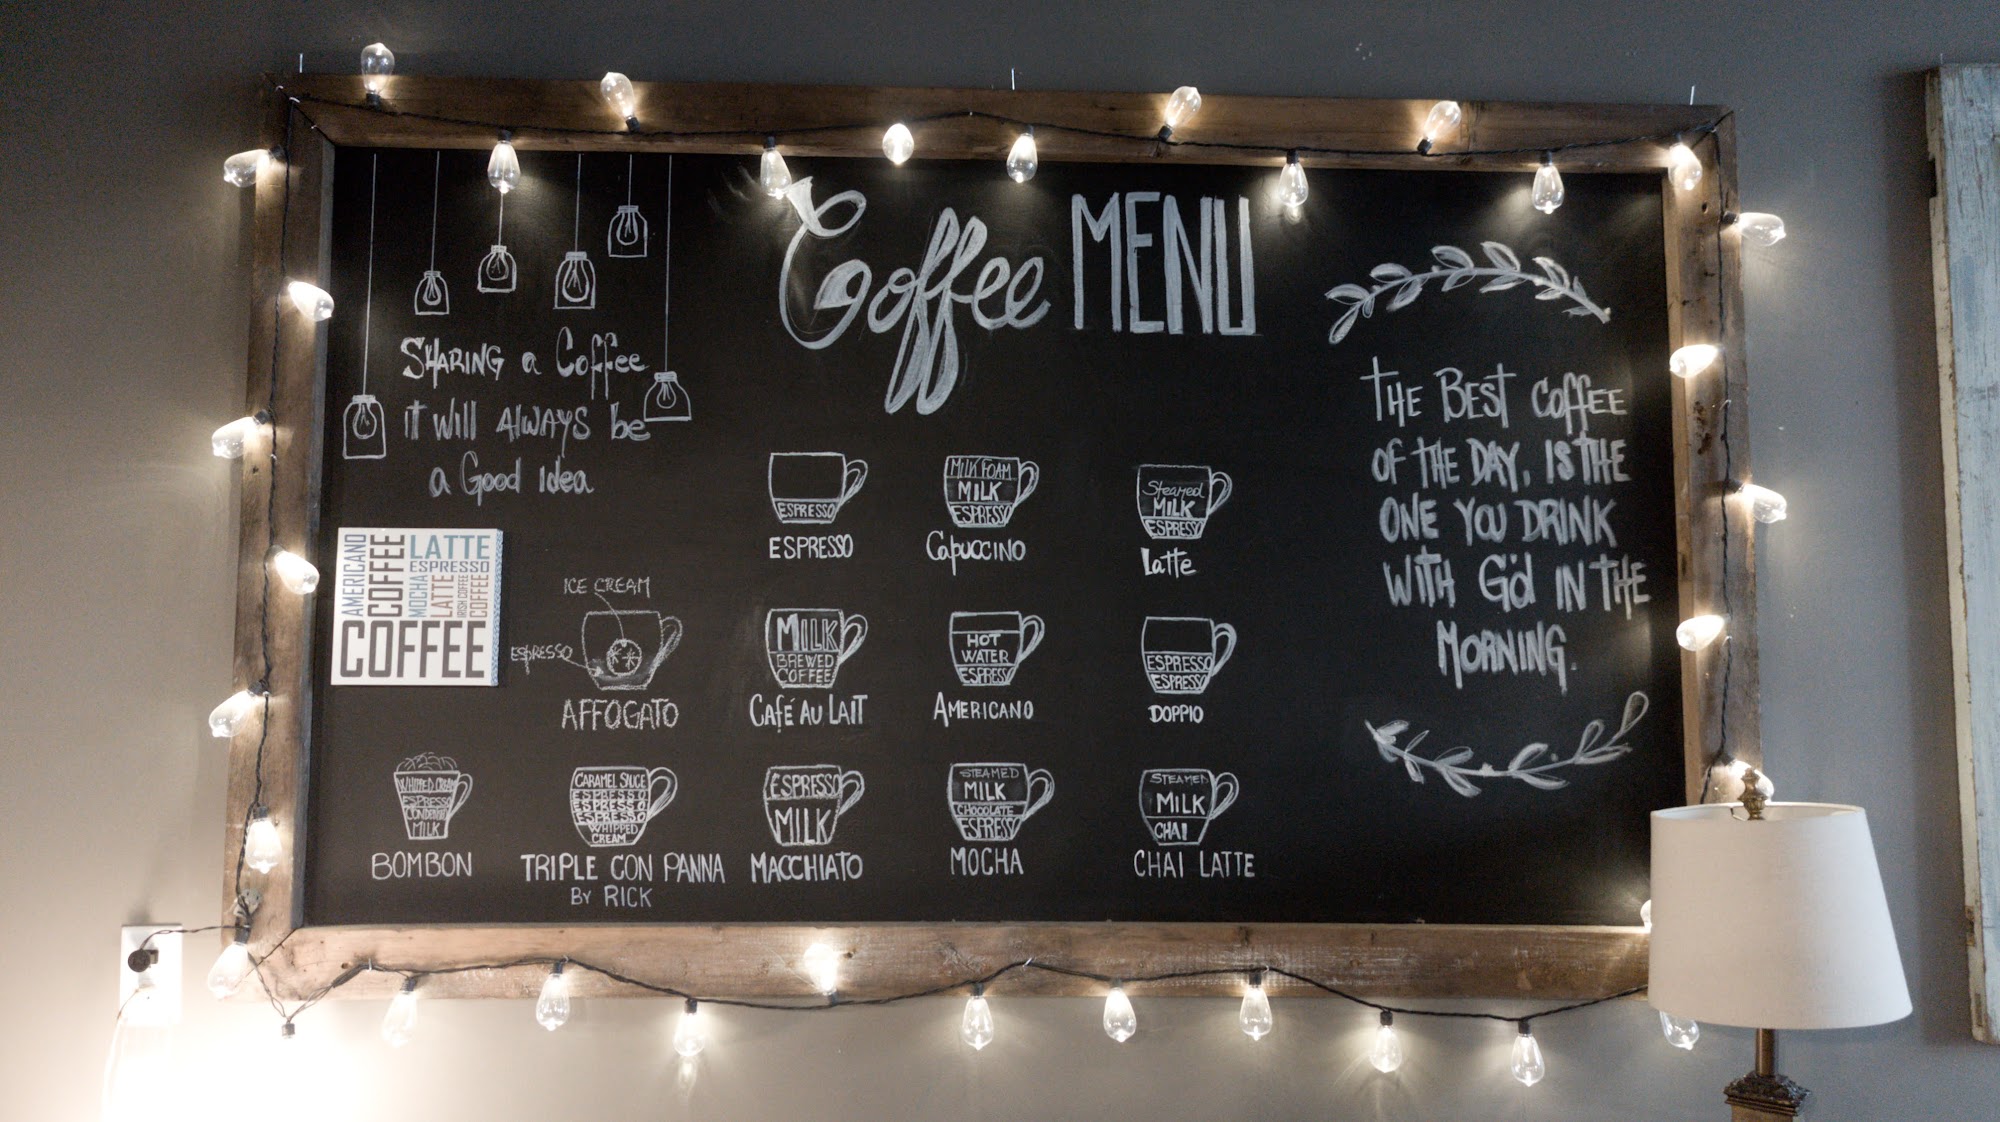 Coffee MENU
SHARING a Coffee
IT Will ALWAYS be
a Good Idea
AMERICANO
COFFEE
LATTE
ESPRESSO
MOCHA
LATTE
IRISH COFFEE
COFFEE
COFFEE
ESPRESSO
ESPRESSO
MILK FOAM
MILK
ESPRESSO
Capuccino
Steamed
MILK
ESPRESSO
Latte
ICE CREAM
ESPRESSO
AFFOGATO
MILK
BREWED
COFFEE
Café AU LAIT
HOT
WATER
ESPRESS
AMERICANO
ESPRESSO
ESPRESSO
DOPPIO
WHIPPED CREAM
ESPRESSO
MILK
BOMBON
CARAMEL SAUCE
ESPRESSO
ESPRESSO
ESPRESSO
WHIPPED
CREAM
TRIPLE CON PANNA
BY RICK
ESPRESSO
MILK
MACCHIATO
STEAMED
MILK
CHOCOLATE
ESPRESSO
MOCHA
STEAMED
MILK
CHAI
CHAI LATTE
THE BEST COFFEE
OF THE DAY, IS THE
ONE YOU DRINK
WITH G'd IN THE
MORNING.